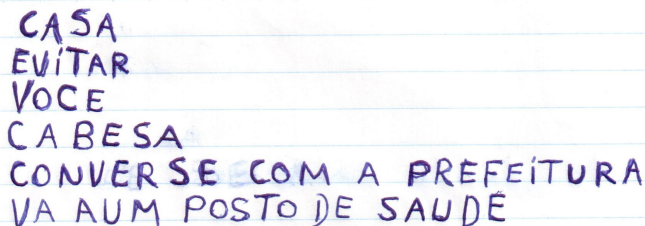 CASA
EVITAR
VOCE
CABESA
CONVERSE COM A PREFEITURA
VA AUM POSTO DE SAUDE